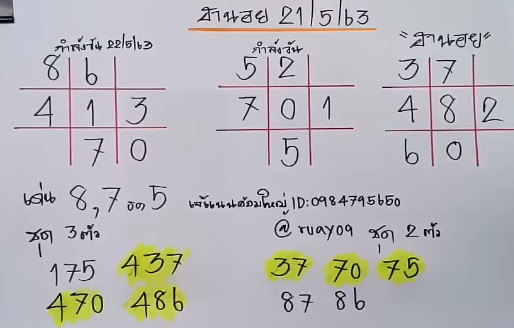 ฮานอย 21/5/63
กำลังวัน 22/5/63
8 6
4 1 3
7 0
กำลังวัน
5 2
7 0 1
5
"ฮานอย"
3 7
4 8 2
6 0
เด่น 8,7 รอง 5
ID:0984795650
@ruay09
ชุด 3 ตัว
175 437
470 486
ชุด 2 ตัว
37 70 75
87 86